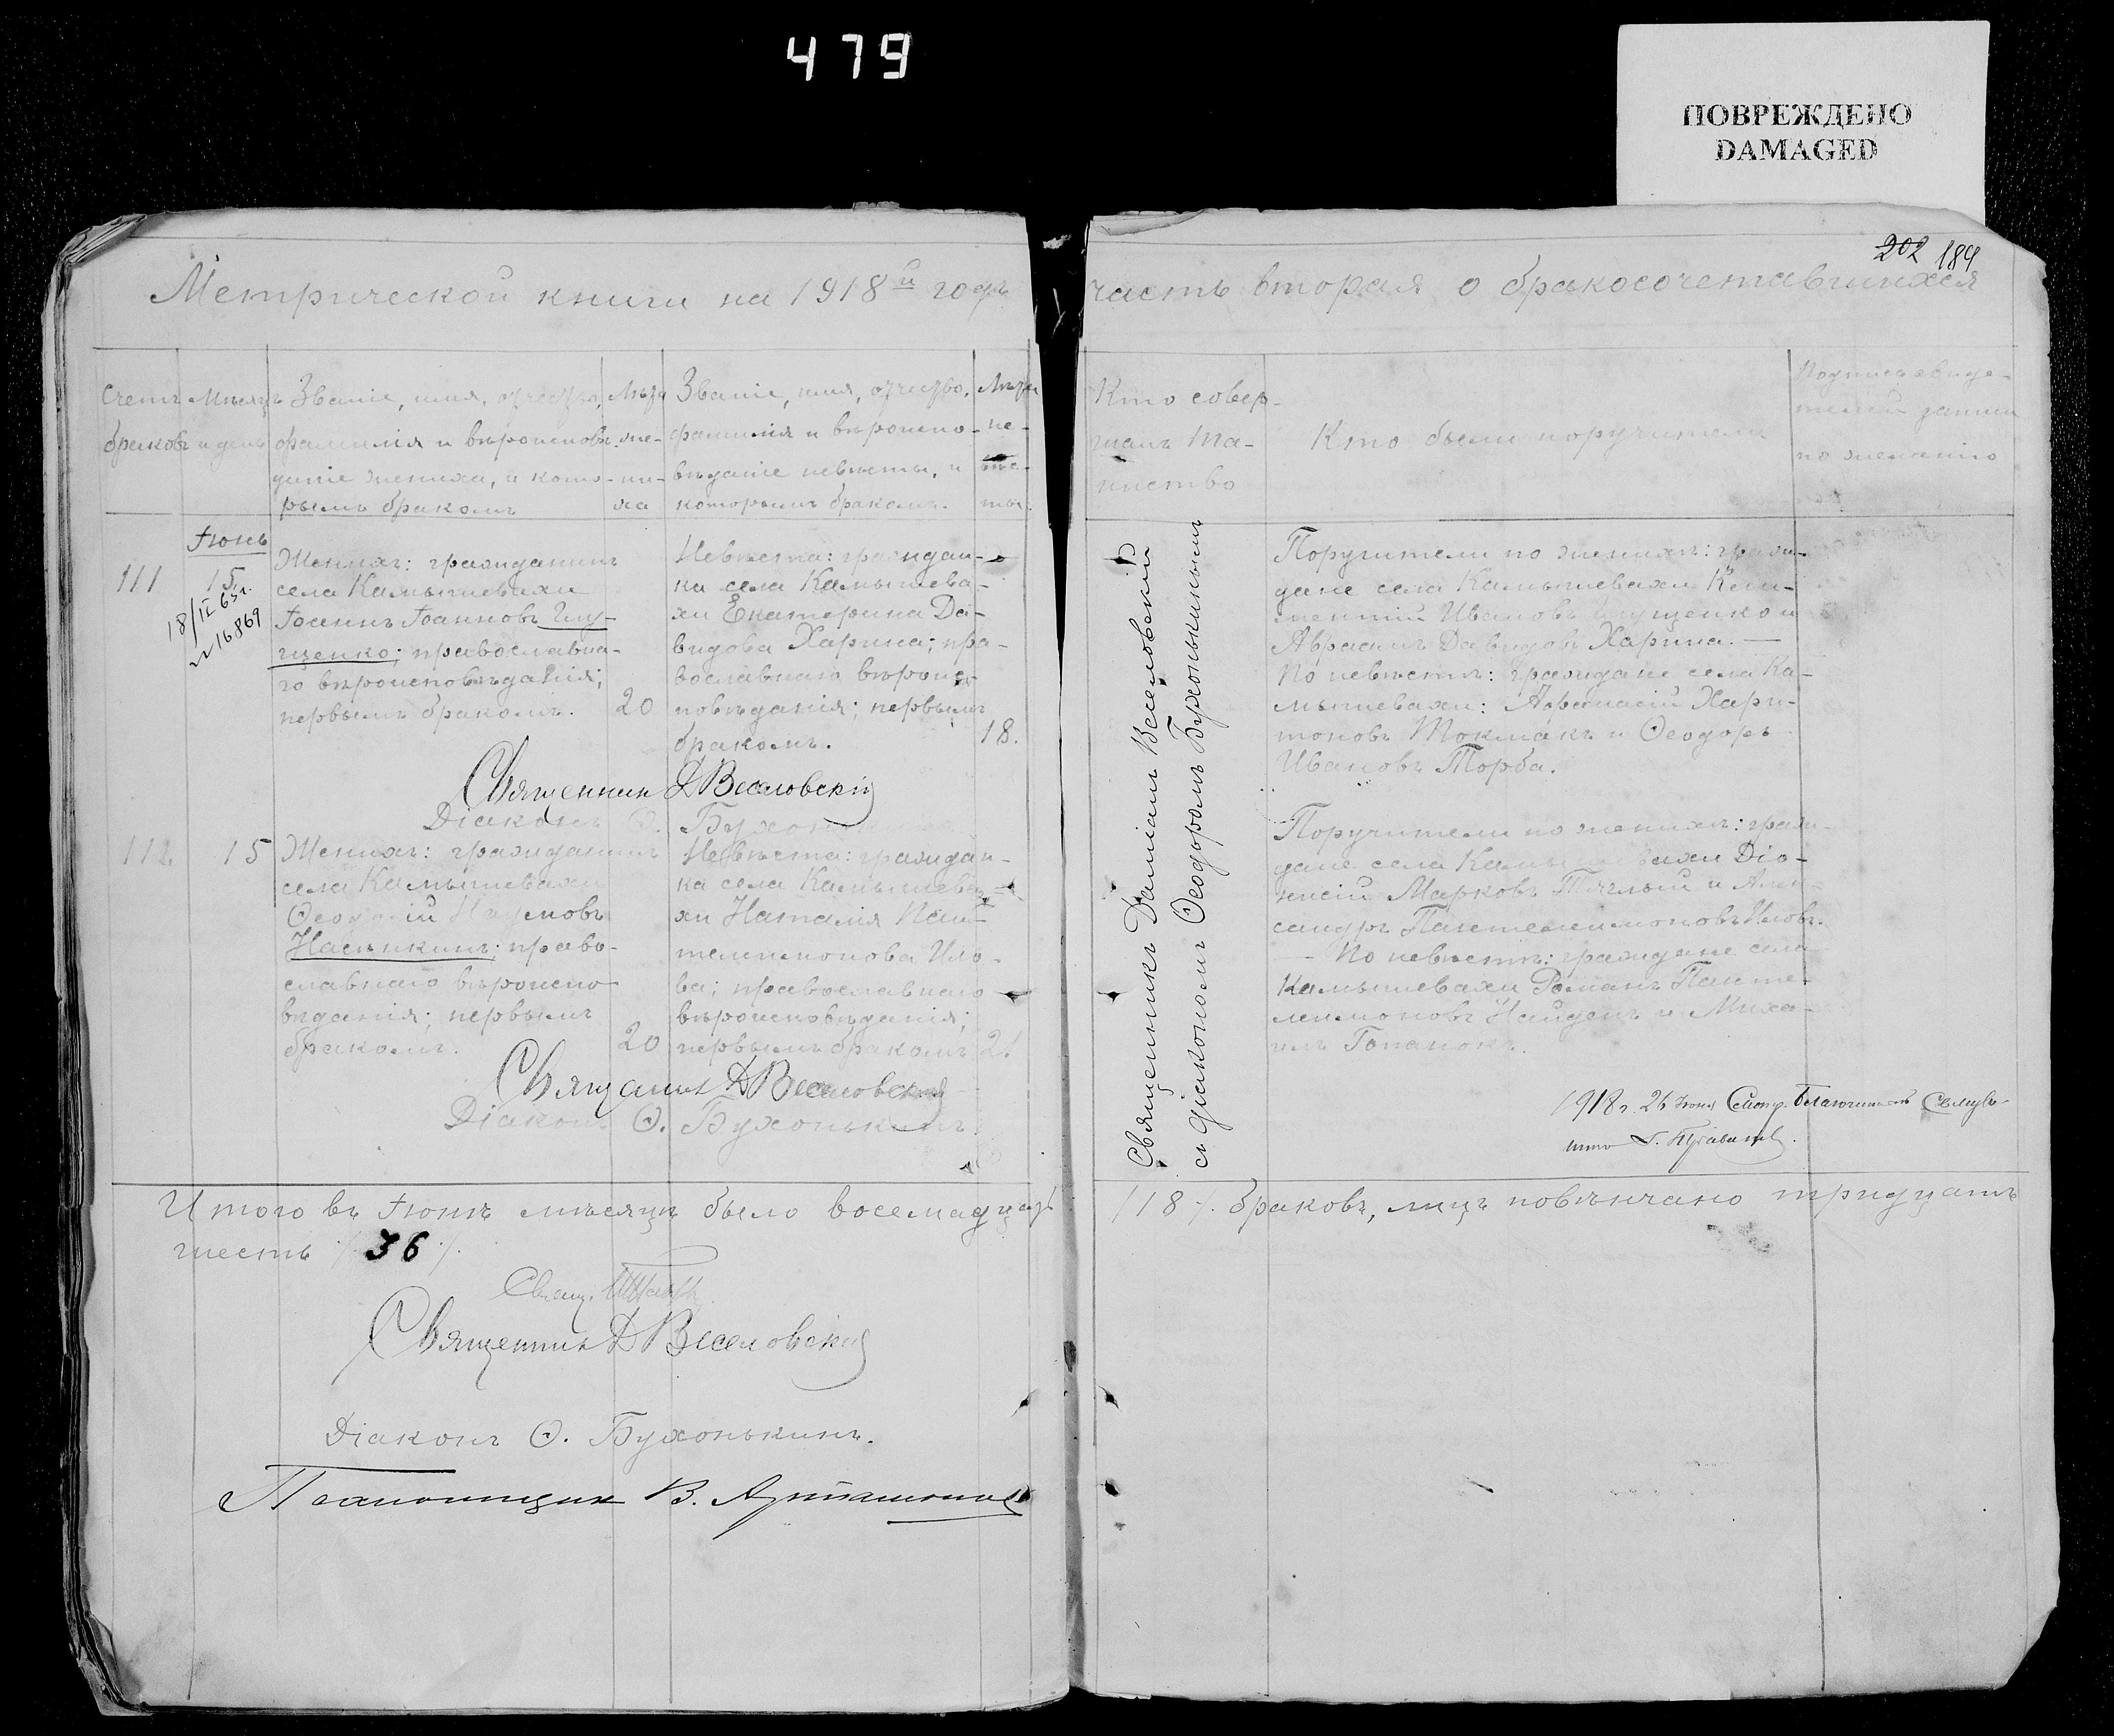 479
ПОВРЕЖДЕНО
DAMAGED
202 184
Метрической книги на 1918й годъ
часть вторая о бракосочетавшихся
Счетъ браковъ
Мѣсяцъ и день
Званіе, имя, отчество,
фамилія и вѣроисповѣ-
даніе жениха, и кото-
рымъ бракомъ
Лѣта
же-
ни-
ха
Званіе, имя, отчество,
фамилія и вѣроиспо-
вѣданіе невѣсты, и
которымъ бракомъ.
Лѣта
не-
вѣс-
ты.
Кто совер-
шалъ Та-
инство
Кто были поручители
Подпись свиде-
телей записи
по желанію
Іюнь
111
15
18/II 65 г.
№ 16869
Женихъ: гражданинъ
села Камышевахи
Іоаннъ Іоанновъ Глу-
щенко; православна-
го вѣроисповѣданія;
первымъ бракомъ.
20
Невѣста: граждан-
ка села Камышева-
хи Екатерина Да-
видова Харина; пра-
вославнаго вѣроис-
повѣданія; первымъ
бракомъ.
18.
Священникъ Даміанъ Веселовскій
съ діакономъ Ѳеодоромъ Бухонькинымъ
Поручители по женихѣ: граж-
дане села Камышевахи
Ивановъ Глущенко и
Авраамъ Давидовъ Харина. —
По невѣстѣ: граждане села Ка-
мышевахи: Афанасій Хари-
тоновъ Токмакъ и Ѳеодоръ
Ивановъ Торба.
Священникъ Д Веселовскій
Діаконъ Ѳ. Бухонькинъ
112
15
Женихъ: гражданинъ
села Камышевахи
Ѳеодосій Наумовъ
Насыкинъ; право-
славнаго вѣроиспо-
вѣданія; первымъ
бракомъ.
20
Невѣста: граждан-
ка села Камышева-
хи Наталія Пан-
телеимонова Ило-
ва; православнаго
вѣроисповѣданія;
первымъ бракомъ
21
Поручители по женихѣ: граж-
дане села Камышевахи Діо-
нисій Марковъ Тяглый и Алек-
сандръ Пантелеимоновъ Иловъ.
— По невѣстѣ: граждане села
Камышевахи Романъ Панте-
леимоновъ Найденъ и Миха-
илъ Гопанокъ.
Священникъ Д Веселовскій
Діаконъ Ѳ. Бухонькинъ.
1918 г. 26 Іюня
Итого въ Іюнѣ мѣсяцѣ было восемнадцать
/18/. браковъ, лицъ повѣнчано тридцать
шесть /36/.
Свящ.
Священникъ Д Веселовскій
Діаконъ Ѳ. Бухонькинъ.
Псаломщикъ В.